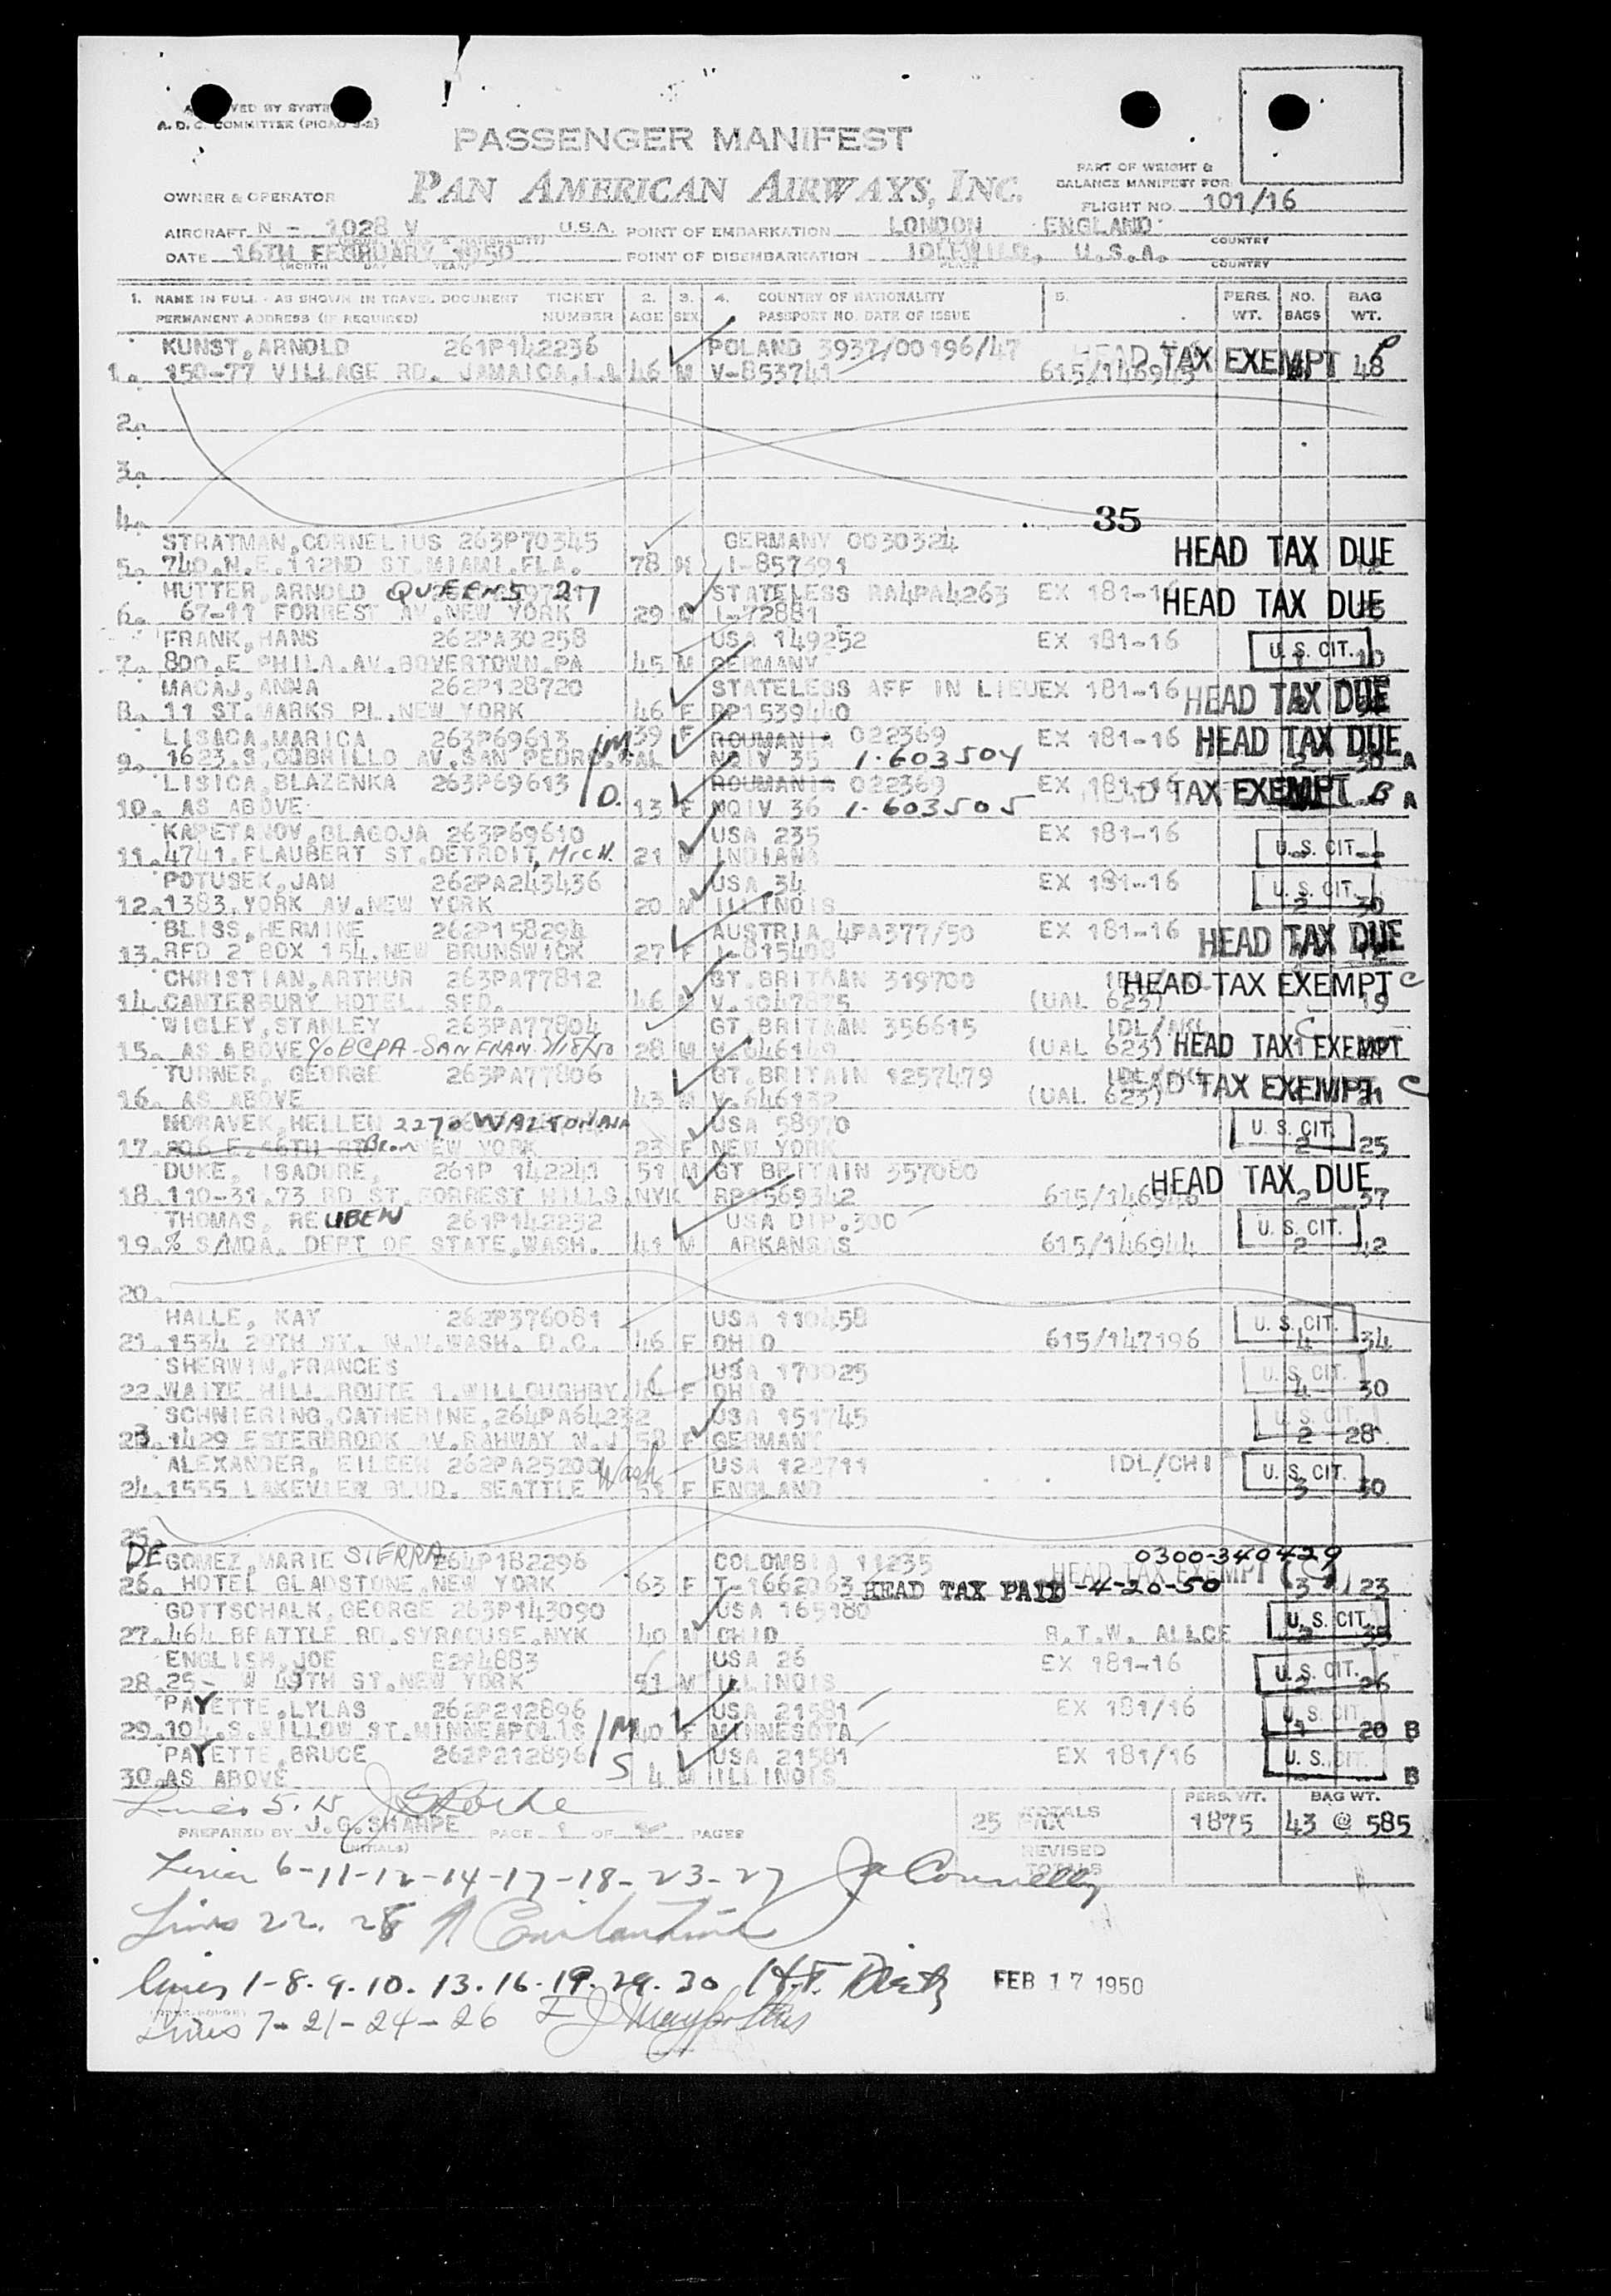 A. D. C. COMMITTEE (PICAO 3-2)
PASSENGER MANIFEST
OWNER & OPERATOR PAN AMERICAN AIRWAYS, INC.
PART OF WEIGHT &
BALANCE MANIFEST FOR
FLIGHT NO. 101/16
AIRCRAFT N - 1028 V U.S.A. POINT OF EMBARKATION LONDON ENGLAND
COUNTRY
DATE 16TH FEBRUARY 1950 POINT OF DISEMBARKATION IDLEWILD, U.S.A.
(MONTH DAY YEAR) PLACE COUNTRY
1. NAME IN FULL - AS SHOWN IN TRAVEL DOCUMENT TICKET 2. 3. 4. COUNTRY OF NATIONALITY 5. PERS. NO. BAG
PERMANENT ADDRESS (IF REQUIRED) NUMBER AGE SEX PASSPORT NO. DATE OF ISSUE WT. BAGS WT.
KUNST, ARNOLD 261P142236 POLAND 3937/00196/47 HEAD TAX EXEMPT
1. 150-77 VILLAGE RD. JAMAICA, L.I. 46 M V-853741 615/146945 48
2.
3.
4. 35
STRATMAN, CORNELIUS 263P70345 GERMANY 0030324 HEAD TAX DUE
5. 740.N.E.112ND ST.MIAMI.FLA. 78 M I-857391
HUTTER, ARNOLD QUEENS 27 STATELESS RA4PA4263 EX 181-16 HEAD TAX DUE
6. 67-11 FORREST AV.NEW YORK 29 M I-72881
FRANK, HANS 262PA30258 USA 149252 EX 181-16 U.S. CIT.
7. 800.E PHILA.AV.BOVERTOWN.PA 45 M GERMANY 10
MACAJ, ANNA 262P128720 STATELESS AFF IN LIEU EX 181-16 HEAD TAX DUE
8. 11 ST.MARKS PL.NEW YORK 46 F RP1539440
LISACA, MARICA 263P69613 /M 39 F ROUMANIA 022369 EX 181-16 HEAD TAX DUE
9. 1623.S.CABRILLO AV.SAN PEDRO.CAL NQIV 35 1-603504 30 A
LISICA, BLAZENKA 263P69613 ROUMANIA 022369 EX 181-16 HEAD TAX EXEMPT B
10. AS ABOVE /D. 13 F NQIV 36 1-603505 A
KAPETANOV, BLAGOJA 263P69610 USA 235 EX 181-16 U.S. CIT.
11. 4741.FLAUBERT ST.DETROIT, MICH. 21 M INDIANA
POTUSEK, JAN 262PA243436 USA 34 EX 181-16 U.S. CIT.
12. 1383.YORK AV.NEW YORK 20 M ILLINOIS 30
BLISS, HERMINE 262P158294 AUSTRIA 4PA377/50 EX 181-16 HEAD TAX DUE
13. RFD 2 BOX 154.NEW BRUNSWICK 27 F I-815408 12
CHRISTIAN, ARTHUR 263PA77812 GT.BRITAAN 319700 HEAD TAX EXEMPT C
14. CANTERBURY HOTEL. SFO. 46 M V.1047875 (UAL 623) 19
WIGLEY, STANLEY 263PA77804 GT.BRITAAN 356615 C
15. AS ABOVE C/O BCPA - SAN FRAN. 2/18/50 28 M V.646149 (UAL 623) HEAD TAX EXEMPT
TURNER, GEORGE 263PA77806 GT.BRITAIN 1257479 HEAD TAX EXEMPT C
16. AS ABOVE 43 M V.646132 (UAL 623) 21
MORAVEK, HELLEN 2270 WALTON AVE USA 58970 U.S. CIT.
17. Bron NEW YORK 23 F NEW YORK 2 25
DUKE, ISADORE, 261P 142241 51 M GT BRITAIN 357080 HEAD TAX DUE
18. 110-31.73 RD ST.FORREST HILLS.NYK RP1569342 615/146946 2 37
THOMAS, REUBEN 261P142232 USA DIP.300 U.S. CIT.
19. % S/MDA. DEPT OF STATE.WASH. 41 M ARKANSAS 615/146944 2 42
20.
HALLE, KAY 262P376081 USA 110458 U.S. CIT.
21. 1534 29TH ST. N.W.WASH. D.C. 46 F OHIO 615/147196 4 34
SHERWIN, FRANCES USA 170025 U.S. CIT.
22. WAITE HILL ROUTE 1.WILLOUGHBY. F OHIO 4 30
SCHWIERING, CATHERINE, 264PA64232 USA 151745 U.S. CIT.
23. 1429 ESTERBROOK AV.RAHWAY N.J 58 F GERMANY 2 28
ALEXANDER, EILEEN 262PA25200 Wash USA 122711 IDL/CHI U.S. CIT.
24. 1555 LAKEVIEW BLUD. SEATTLE 51 F ENGLAND 3 30
25.
DE GOMEZ, MARIE SIERRA 264P182296 COLOMBIA 11235 HEAD TAX EXEMPT 0300-340429
26. HOTEL GLADSTONE.NEW YORK 63 F T-1662063 HEAD TAX PAID -4-20-50 3 23
GOTTSCHALK, GEORGE 263P143090 USA 165180 U.S. CIT.
27. 464 BRATTLE RD.SYRACUSE.NYK 40 M OHIO R.T.W. ALLCE 35
ENGLISH, JOE E2P4883 USA 26 EX 181-16 U.S. CIT.
28. 25- W 49TH ST.NEW YORK 51 M ILLINOIS 2 26
PAYETTE, LYLAS 262P212896 USA 21581 EX 181/16 U.S. CIT.
29. 104.S.WILLOW ST.MINNEAPOLIS /M 40 F MINNESOTA 1 20 B
PAYETTE, BRUCE 262P212896 USA 21581 EX 181/16 U.S. CIT.
30. AS ABOVE S 4 M ILLINOIS B
Lines 5. 15
PREPARED BY J.G.SHARPE PAGE 1 OF PAGES 25 PAX TOTALS PERS. WT. 1875 BAG WT. 43 @ 585
(INITIALS) REVISED TOTALS
Lines 6-11-12-14-17-18-23-27 J Connelly
Lines 22. 28
lines 1-8.9.10.13.16.19.29.30 H.F. Dietz FEB 17 1950
Lines 7-21-24-26